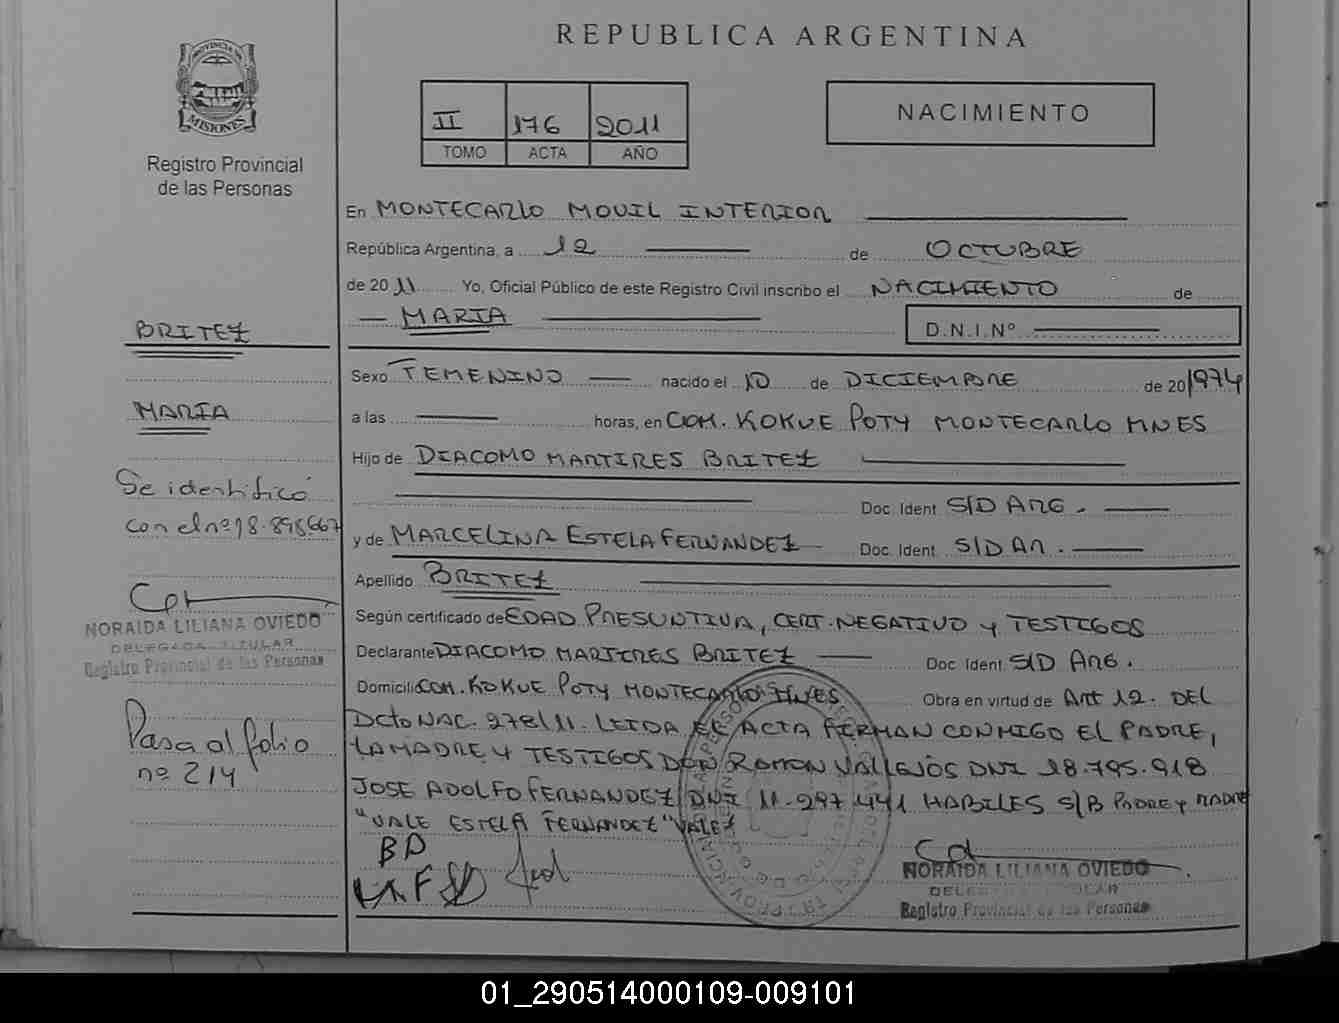 REPUBLICA ARGENTINA
PROVINCIA DE
MISIONES
Registro Provincial
de las Personas
II 176 2011
TOMO ACTA AÑO
NACIMIENTO
En MONTECARLO MOVIL INTERIOR
República Argentina, a 12 de OCTUBRE
de 2011 Yo, Oficial Público de este Registro Civil inscribo el NACIMIENTO de
MARIA
D.N.I.Nº
BRITEZ
MARIA
Se identificó
con el nº 18.898.667
NORAIDA LILIANA OVIEDO
DELEGADA TITULAR
Registro Provincial de las Personas
Pasa al folio
nº 214
Sexo FEMENINO nacido el 10 de DICIEMBRE de 20/974
a las horas, en COM. KOKUE POTY MONTECARLO MNES
Hijo de DIACOMO MARTIRES BRITEZ
Doc. Ident. S/D ARG.
y de MARCELINA ESTELA FERNANDEZ Doc. Ident. S/D AR.
Apellido BRITEZ
Según certificado de EDAD PRESUNTIVA, CERT. NEGATIVO Y TESTIGOS
Declarante DIACOMO MARTIRES BRITEZ Doc. Ident. S/D ARG.
Domicilio COM. KOKUE POTY MONTECARLO MNES Obra en virtud de ART 12. DEL
DCTO NAC. 278/11. LEIDA EL ACTA FIRMAN CONMIGO EL PADRE,
LA MADRE Y TESTIGOS DON RAMON VALLEJOS DNI 18.795.918
JOSE ADOLFO FERNANDEZ DNI 11.297.441 HABILES S/B PADRE Y MADRE
"VALE ESTELA FERNANDEZ" VALE
BD
NORAIDA LILIANA OVIEDO
DELEGADA TITULAR
Registro Provincial de las Personas
01_290514000109-009101